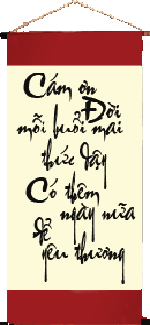 Cám ơn
Đời
mỗi buổi mai
thức dậy
Có thêm
ngày nữa
để
yêu thương